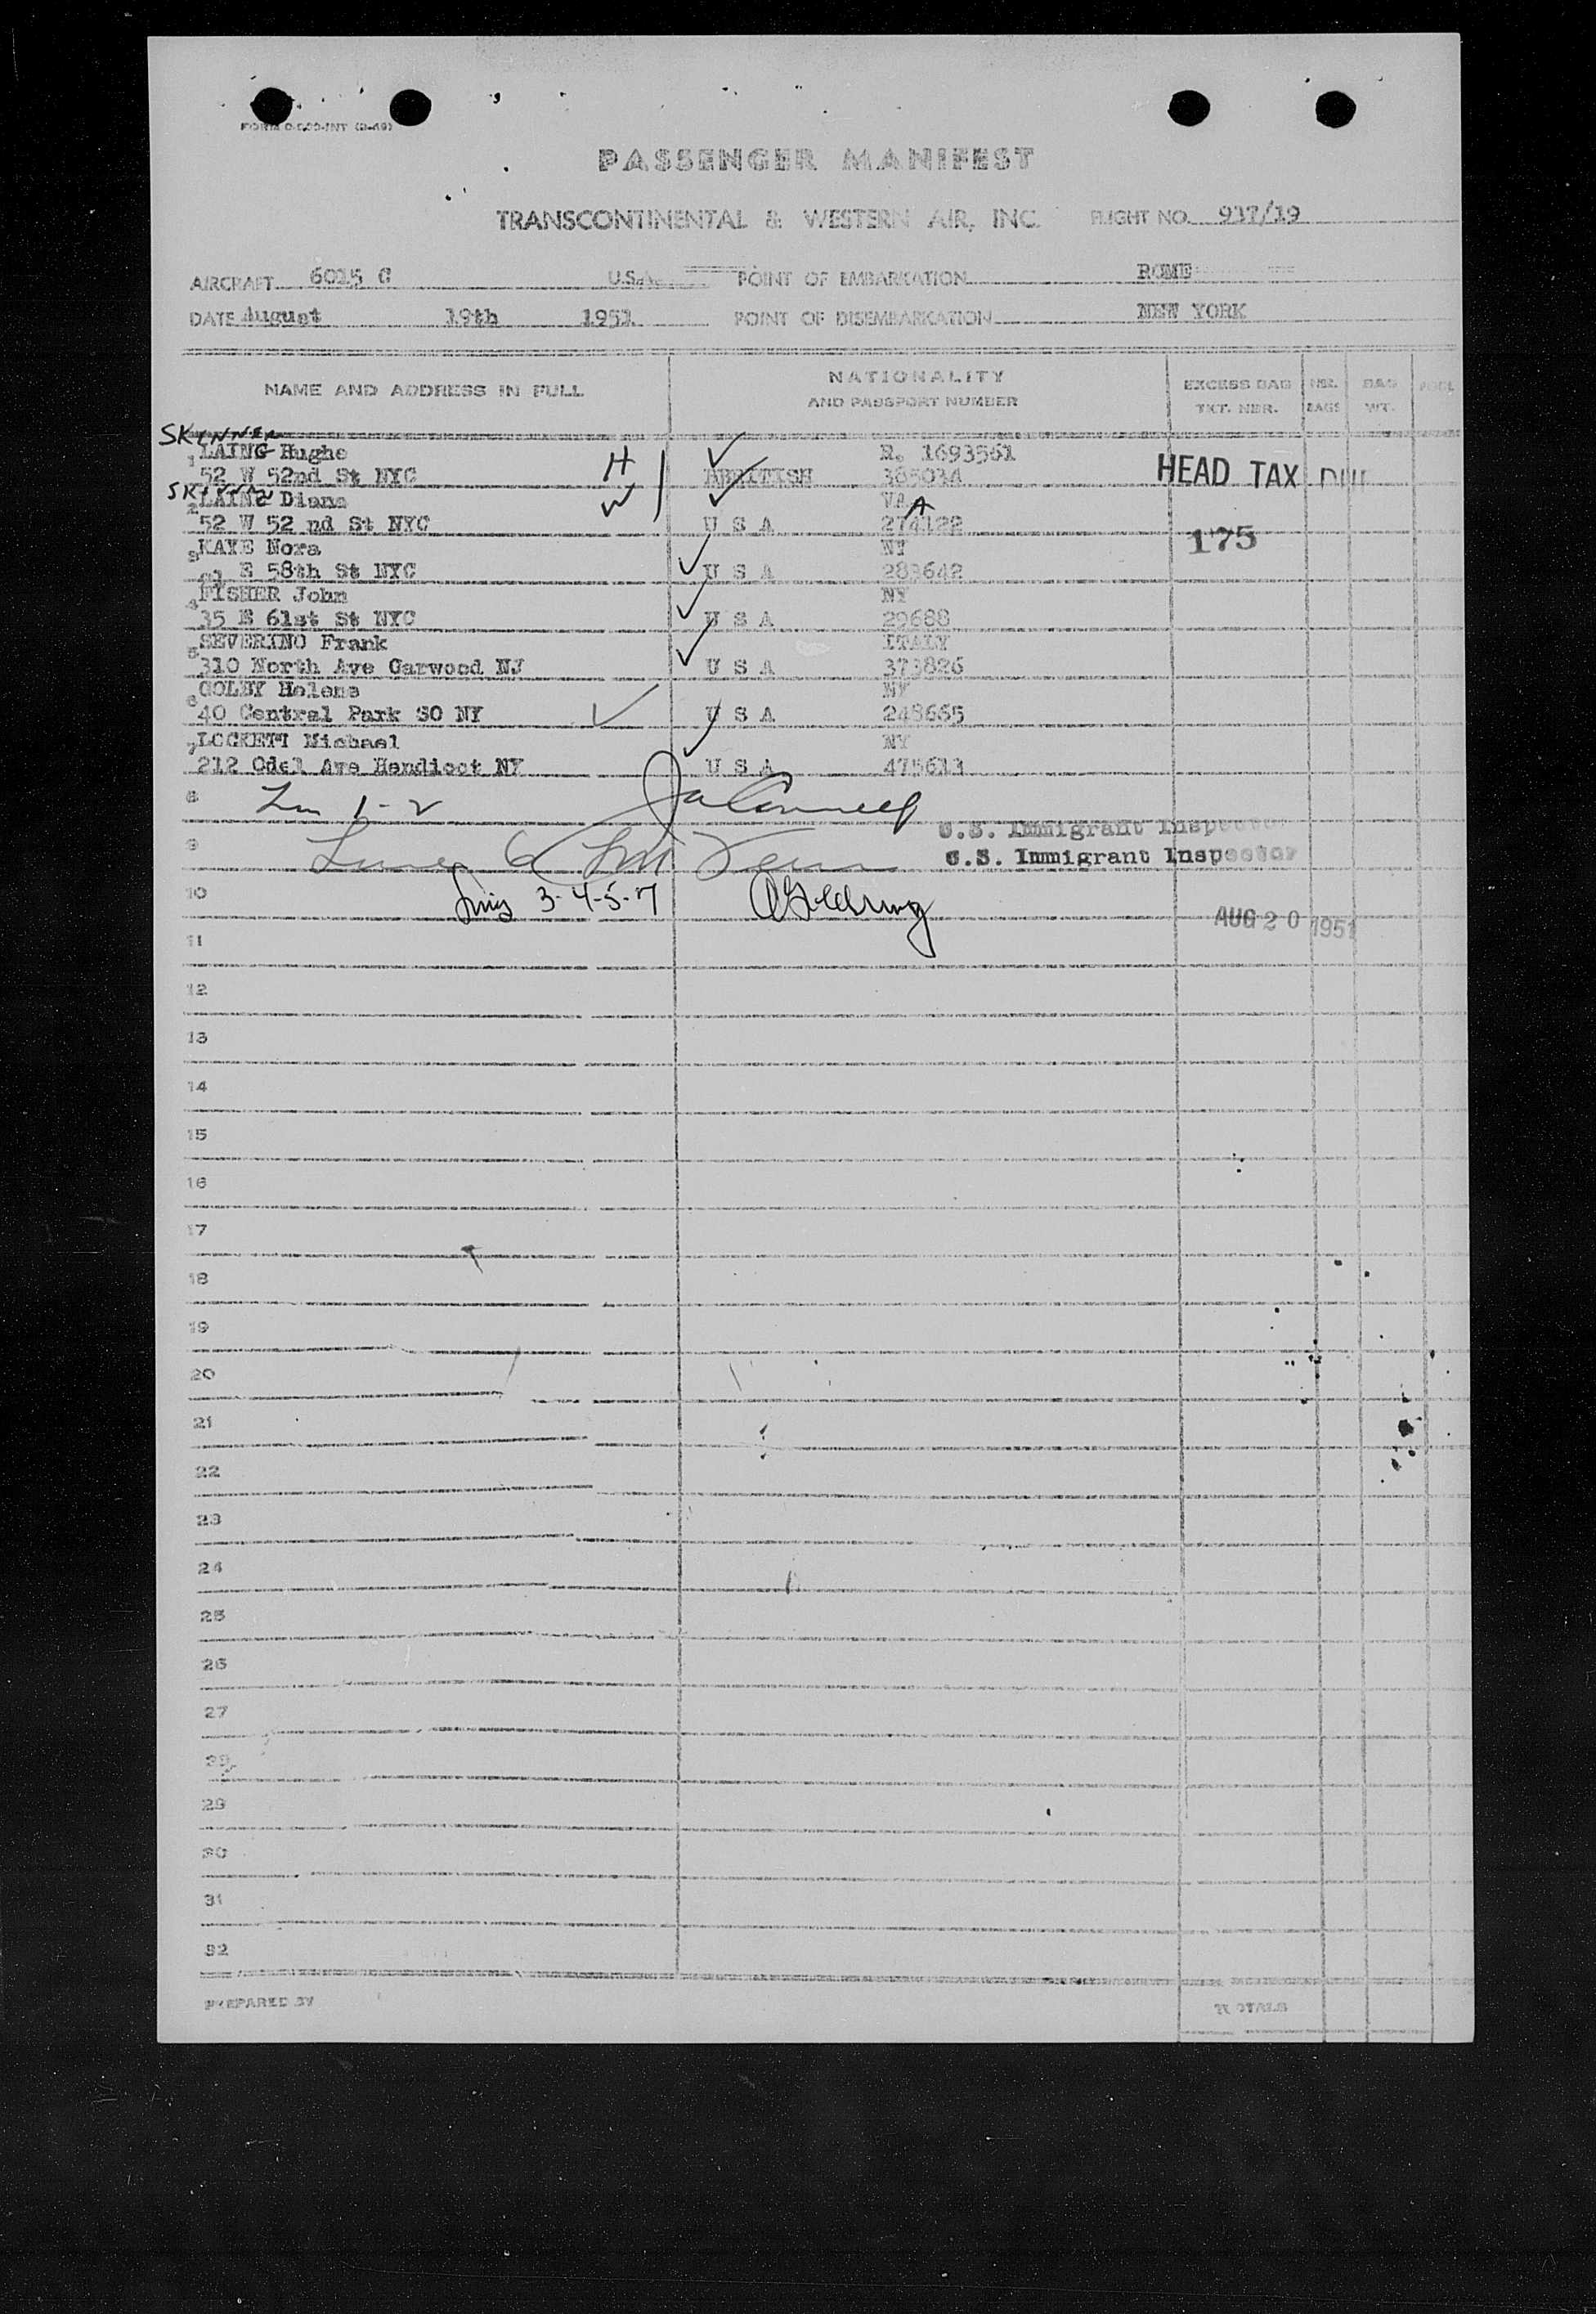 PASSENGER MANIFEST
TRANSCONTINENTAL & WESTERN AIR, INC. FLIGHT NO. 917/19
AIRCRAFT 6015 C U.S.A. POINT OF EMBARKATION ROME
DATE August 19th 1951 POINT OF DISEMBARKATION NEW YORK
NAME AND ADDRESS IN FULL NATIONALITY AND PASSPORT NUMBER EXCESS BAG TKT. NBR. NBR. BAGS BAG WT.
SKINNER
1 LAING Hughe H R. 1693561
52 W 52nd St NYC BRITISH 385034 HEAD TAX DUE
SKINNER
2 LAING Diana W VA A
52 W 52 nd St NYC U S A 274122
3 KAYE Nora NY 175
E 58th St NYC U S A 283642
4 FISHER John NY
35 E 61st St NYC U S A 29688
5 SEVERINO Frank ITALY
310 North Ave Garwood NJ U S A 373826
6 GOLBY Helene NY
40 Central Park SO NY U S A 248665
7 LOCKETT Michael NY
212 Odel Ave Hendicot NY U S A 475613
8 1-2
U.S. Immigrant Inspector
9 6 U.S. Immigrant Inspector
10 3-4-5-7
AUG 20 1951
11
12
13
14
15
16
17
18
19
20
21
22
23
24
25
26
27
28
29
30
31
32
PREPARED BY TOTALS